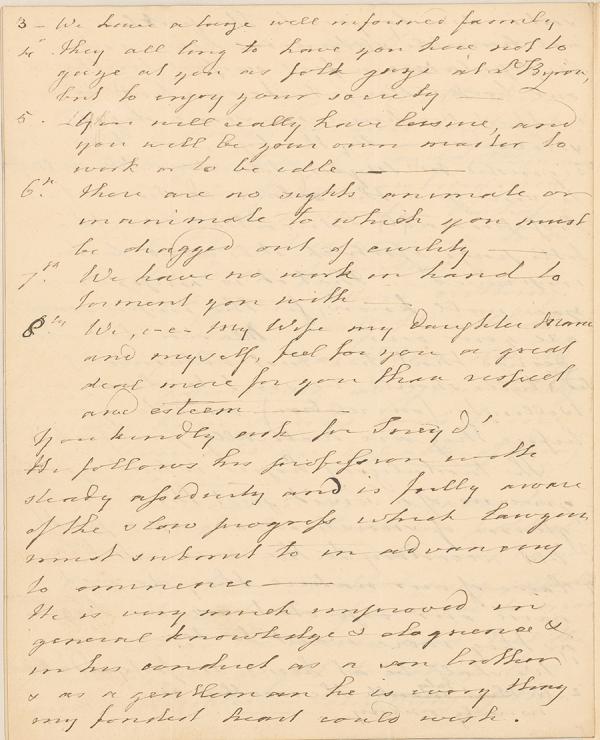 3 - We have a large well informed family
4 . they all long to have you here not to
gaze at you as folk gaze at Ld Byron,
but to enjoy your society —
5 . You will really have lessure, and
you will be your own master to
work or to be idle —
6th. there are no sights animate or
inanimate to which you must
be dragged out of civility —
7th. We have no work in hand to
torment you with —
8thly We, i-e- My Wife my daughter
and myself, feel for you a great
deal more for you than respect
and esteem —
You kindly ask for Sneyd!
He follows his profession with
steady assiduity and is fully aware
of the slow progress which Lawyers
must submit to in advancing
to eminence —
He is very much improved in
general knowledge & eloquence &
in his conduct as a son brother
& as a gentleman he is every thing
my fondest heart could wish .